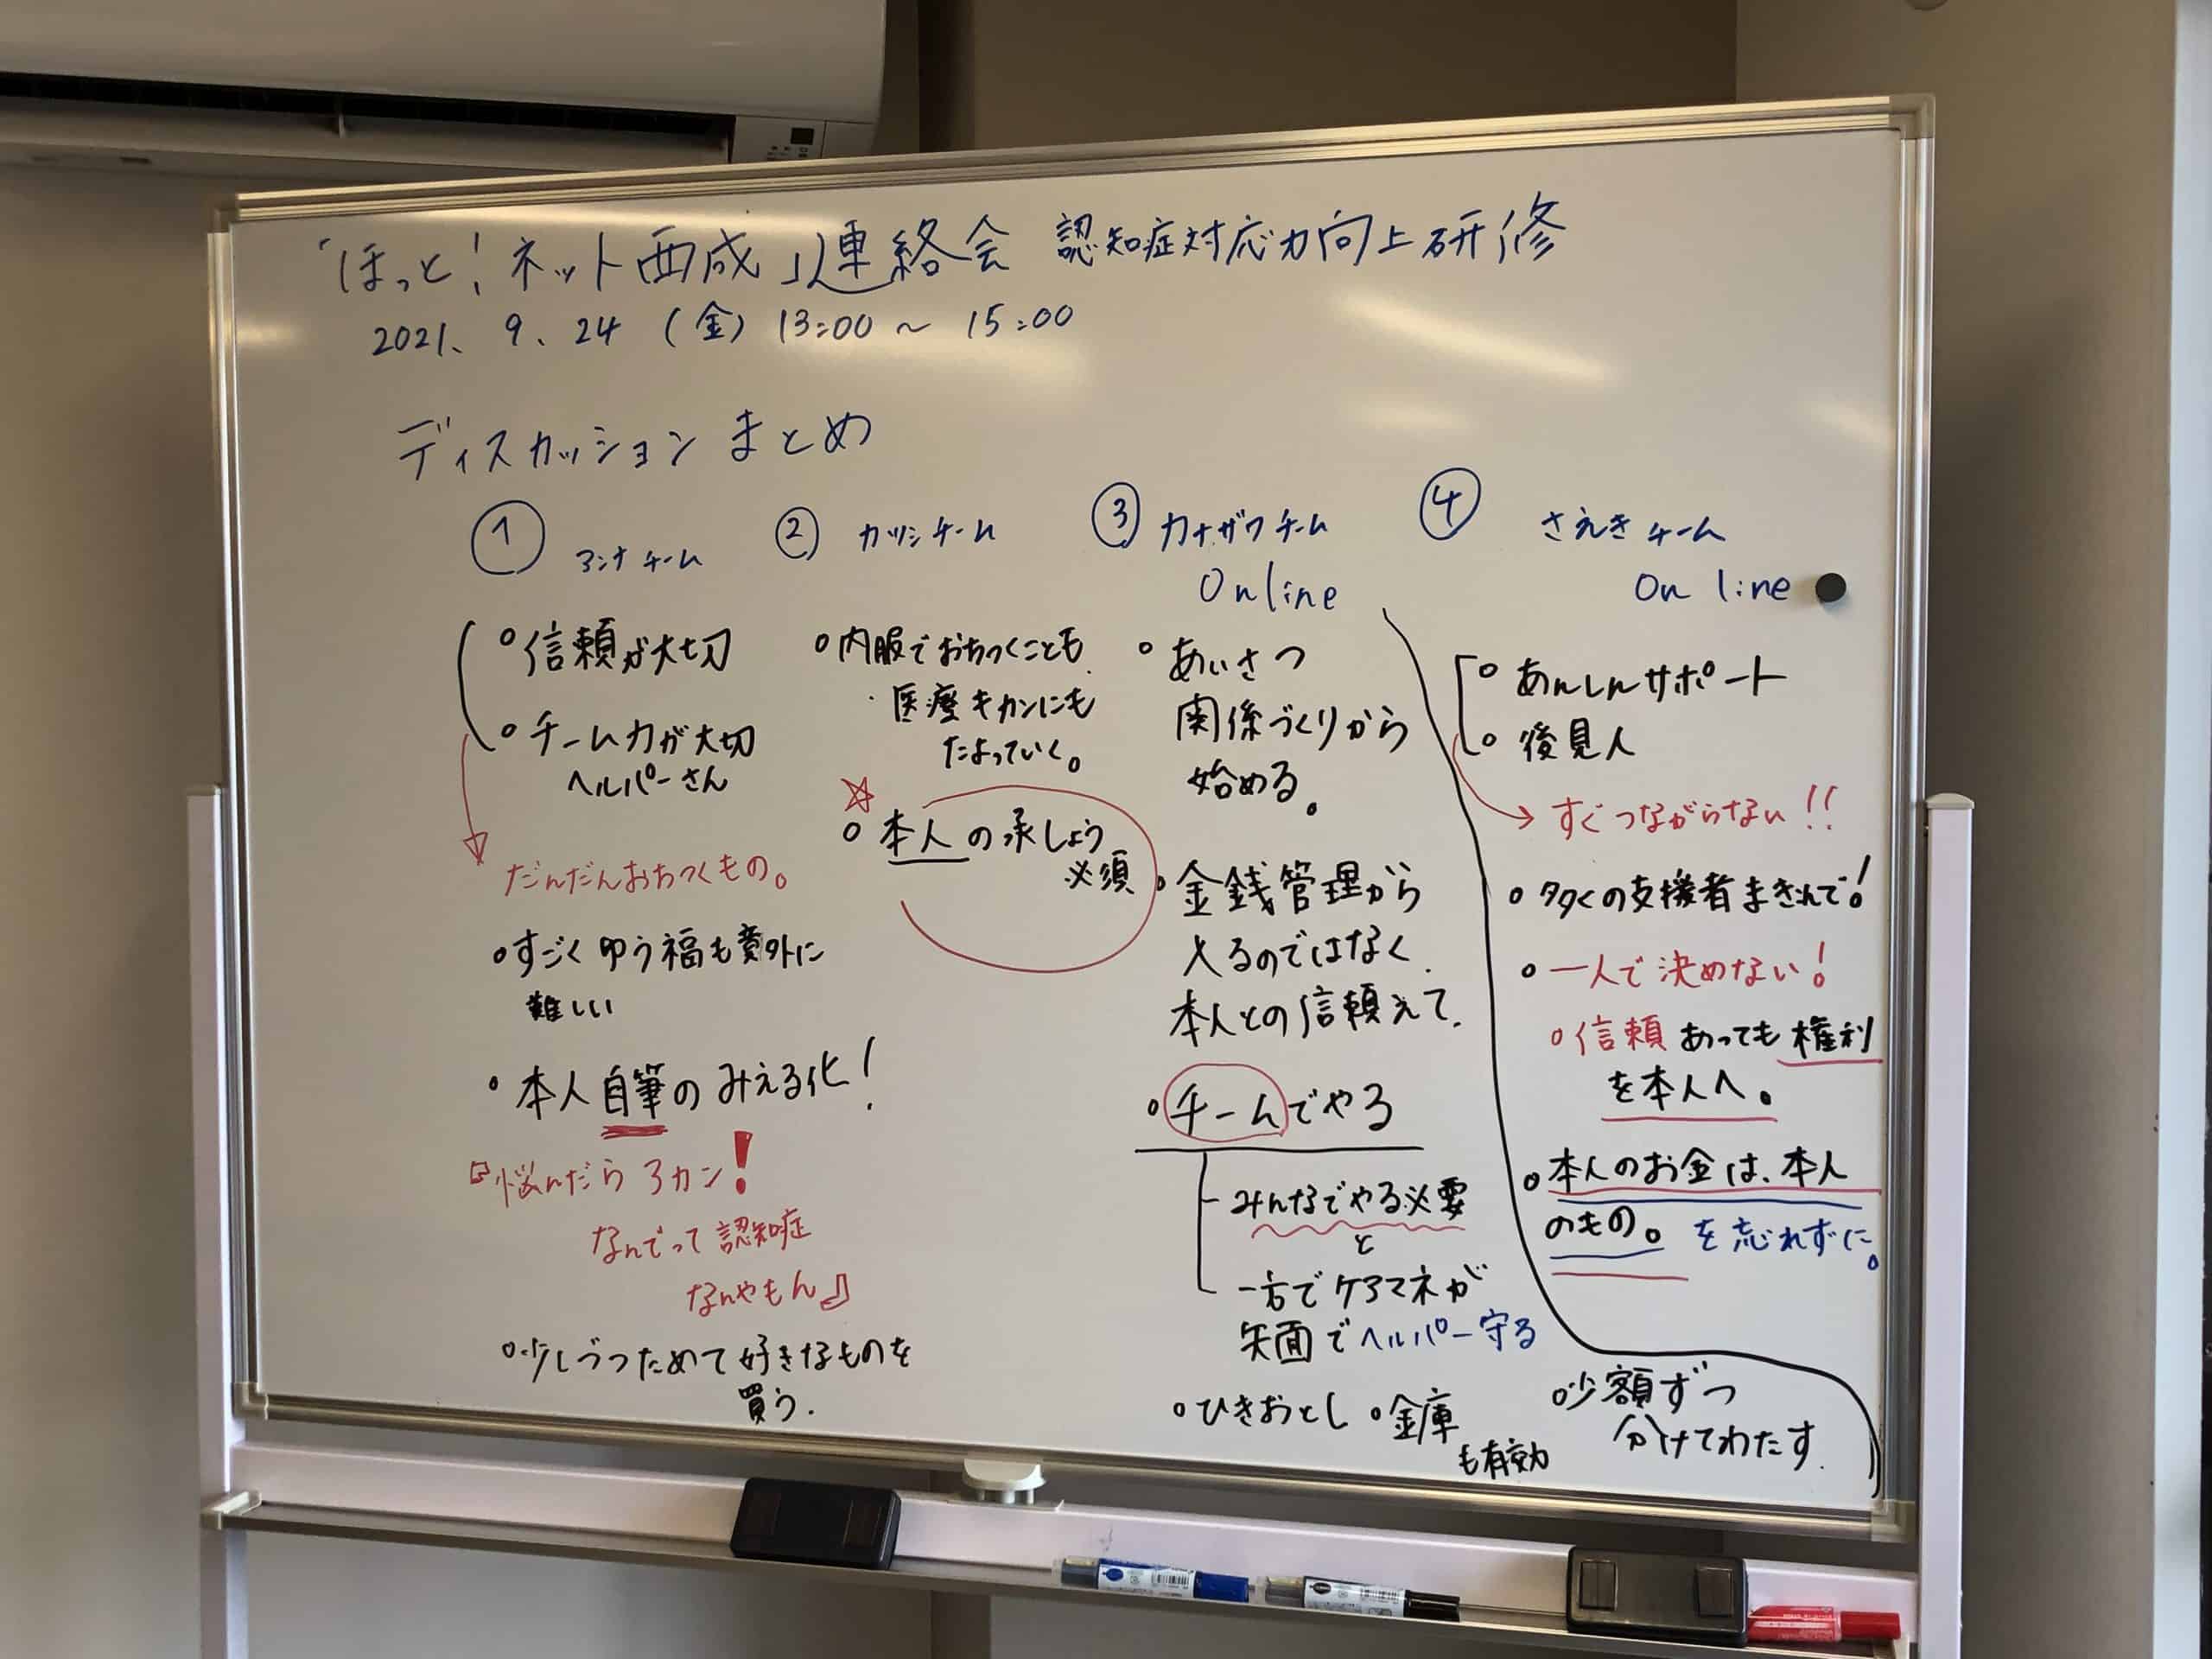 「ほっと！ネット西成」連絡会 認知症対応力向上研修
2021. 9. 24 (金) 13:00 〜 15:00
ディスカッション まとめ
① アンナチーム
。信頼が大切
。チーム力が大切
ヘルパーさん
だんだんおちつくもの。
。すごくゆう福も意外に
難しい
。本人自筆のみえる化！
『悩んだらアカン！
なんでって認知症
なんやもん』
。少しづつためて好きなものを
買う.
② カツシチーム
。内服でおちつくことも.
・医療キカンにも
たよっていく。
☆
。本人の承しょう
必須
③ カナザワチーム
Online
。あいさつ
関係づくりから
始める。
。金銭管理から
入るのではなく.
本人との信頼えて.
。チームでやる
みんなでやる必要
と
一方でケアマネが
矢面でヘルパー守る
。ひきおとし 。金庫
も有効
④ さえきチーム
On line
。あんしんサポート
。後見人
→ すぐつながらない!!
。多くの支援者まきこんで！
。一人で決めない！
。信頼あっても権利
を本人へ。
。本人のお金は、本人
のもの。を忘れずに。
。少額ずつ
分けてわたす.